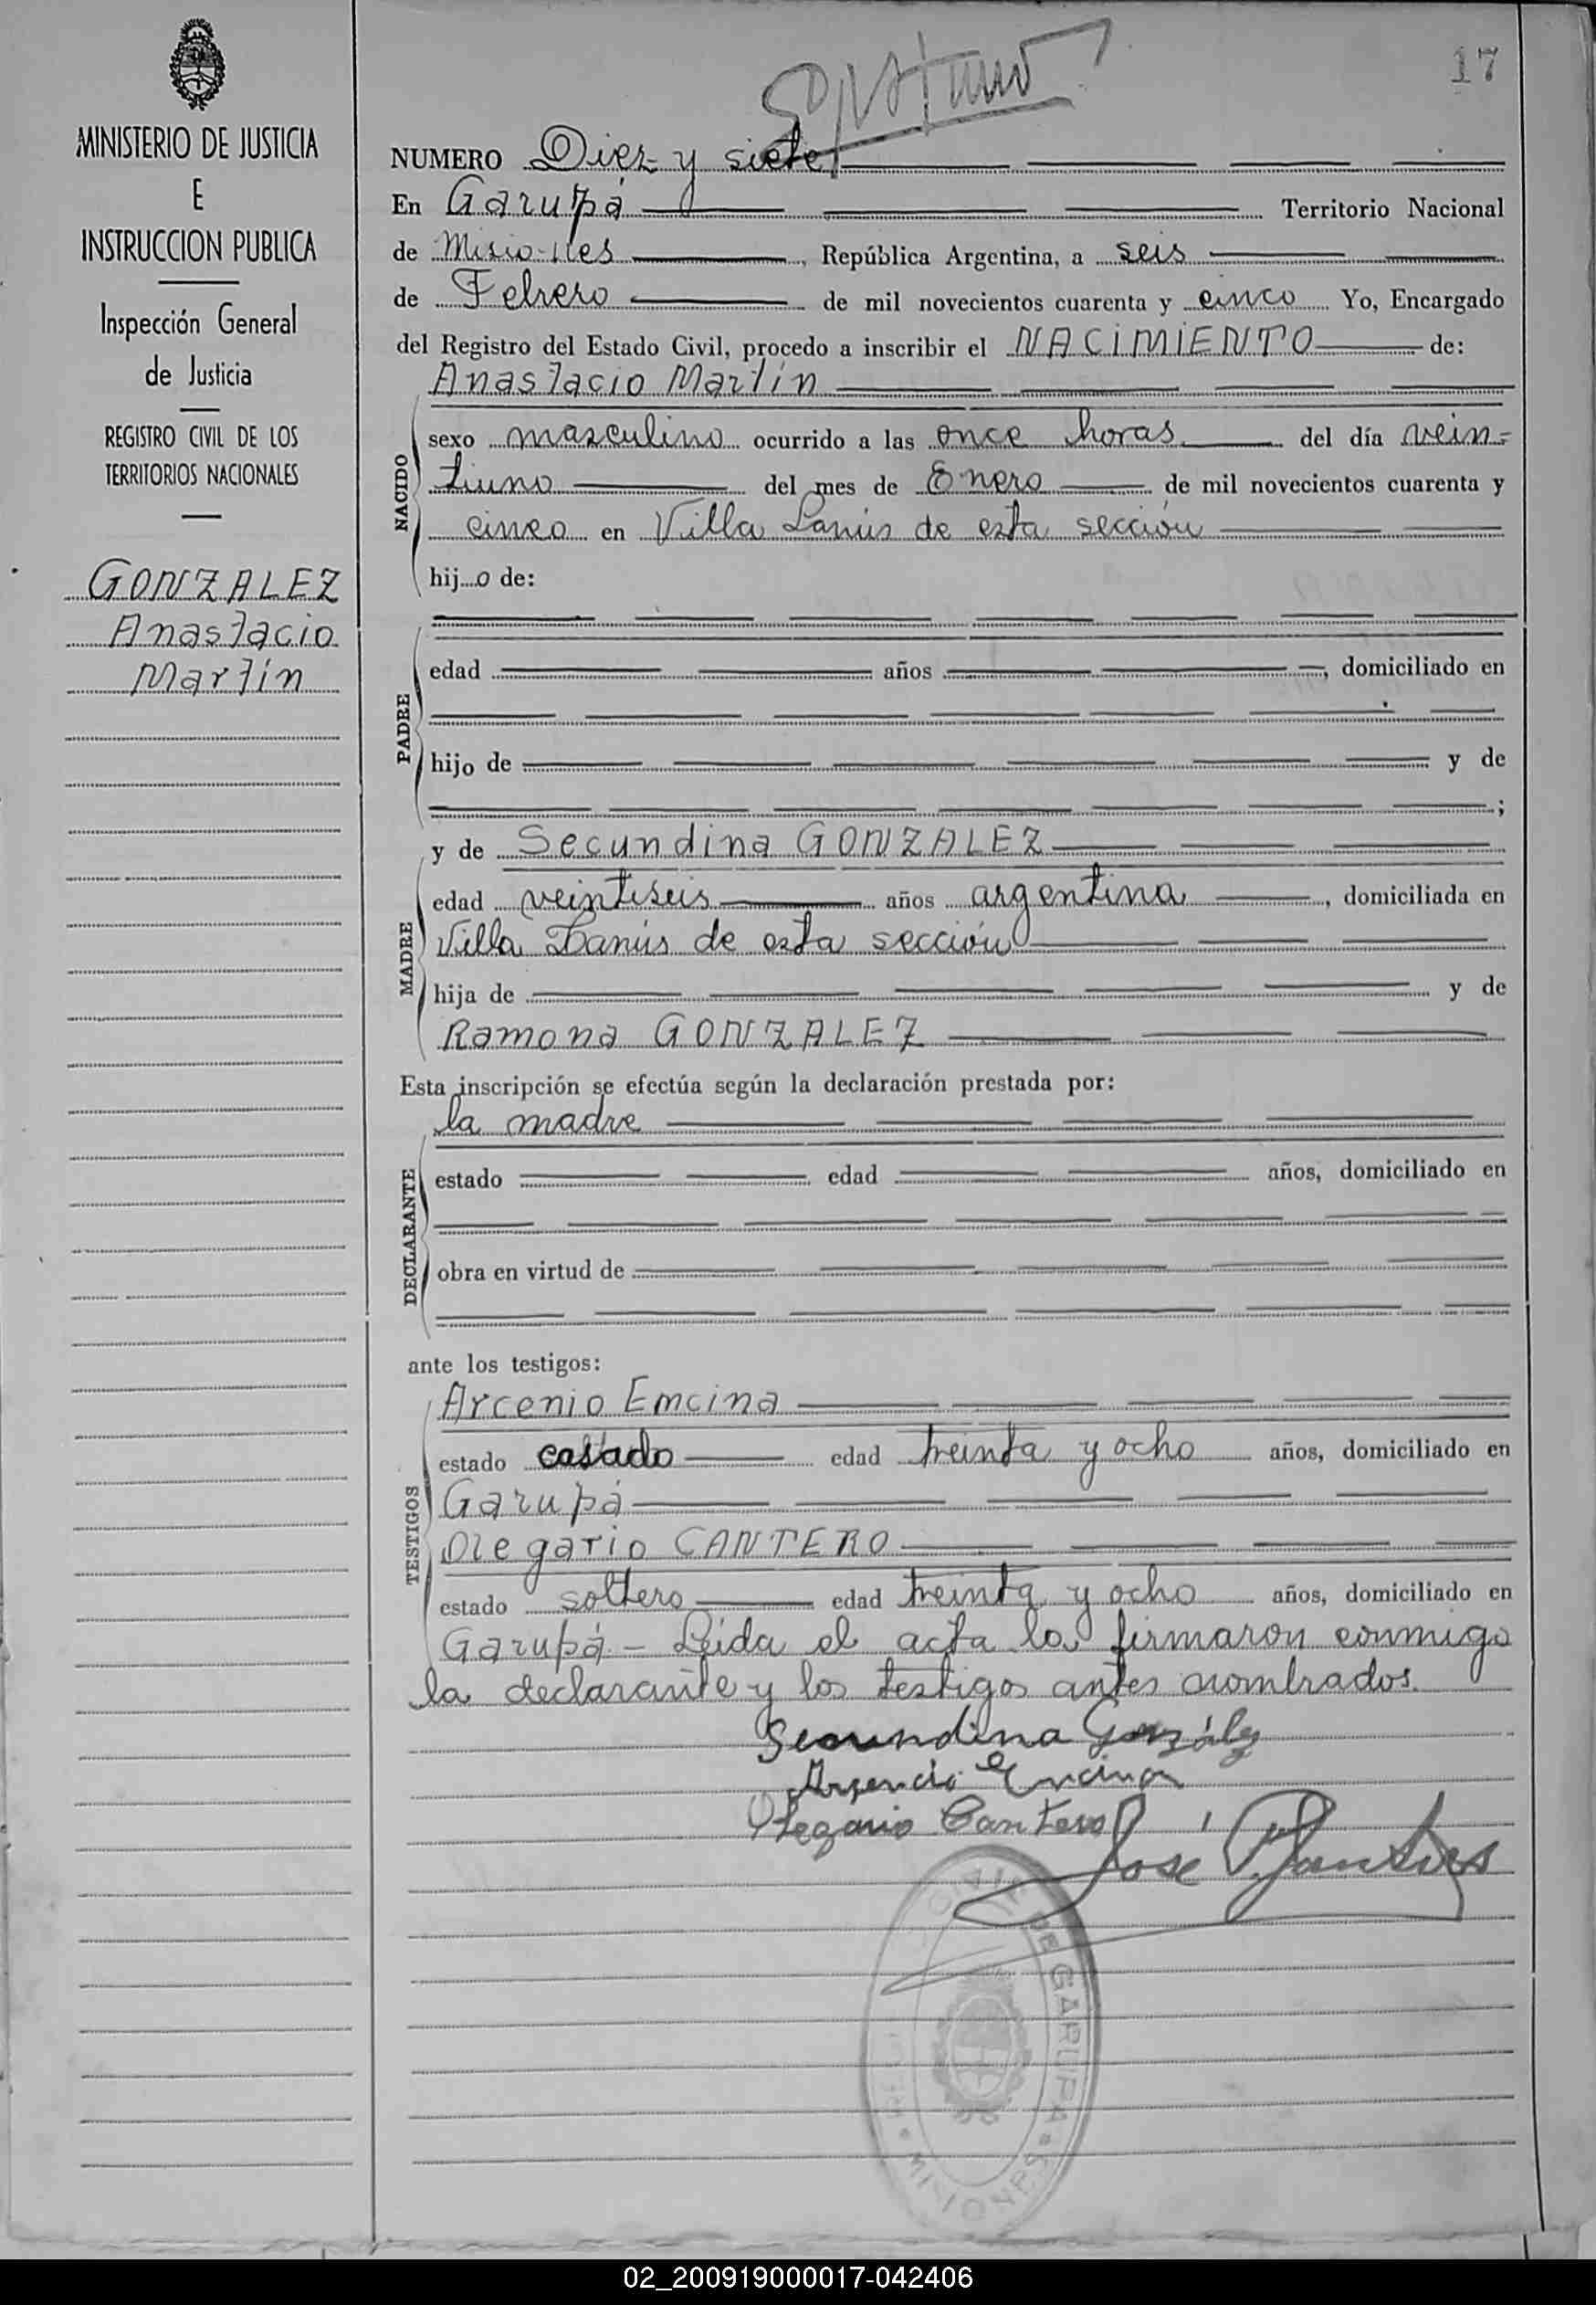 17
MINISTERIO DE JUSTICIA
E
INSTRUCCION PUBLICA
Inspección General
de Justicia
REGISTRO CIVIL DE LOS
TERRITORIOS NACIONALES
GONZALEZ
Anastacio
Martín
NUMERO Diez y siete
En Garupá Territorio Nacional
de Misiones, República Argentina, a seis
de Febrero de mil novecientos cuarenta y cinco Yo, Encargado
del Registro del Estado Civil, procedo a inscribir el NACIMIENTO de:
Anastacio Martín
NACIDO
sexo masculino ocurrido a las once horas del día vein=
tiuno del mes de Enero de mil novecientos cuarenta y
cinco en Villa Lanús de esta sección
hijo de:
PADRE
edad años , domiciliado en
hijo de y de
;
MADRE
y de Secundina GONZALEZ
edad veintiseis años argentina , domiciliada en
Villa Lanús de esta sección
hija de y de
Ramona GONZALEZ
Esta inscripción se efectúa según la declaración prestada por:
la madre
DECLARANTE
estado edad años, domiciliado en
obra en virtud de
ante los testigos:
TESTIGOS
Arcenio Emcina
estado casado edad treinta y ocho años, domiciliado en
Garupá
Olegario CANTERO
estado soltero edad treinta y ocho años, domiciliado en
Garupá - Leída el acta la firmaron conmigo
la declarante y los testigos antes nombrados.
Secundina González
Arsencio Encina
Olegario Cantero
José
DE GARUPA
MISIONES
02_200919000017-042406